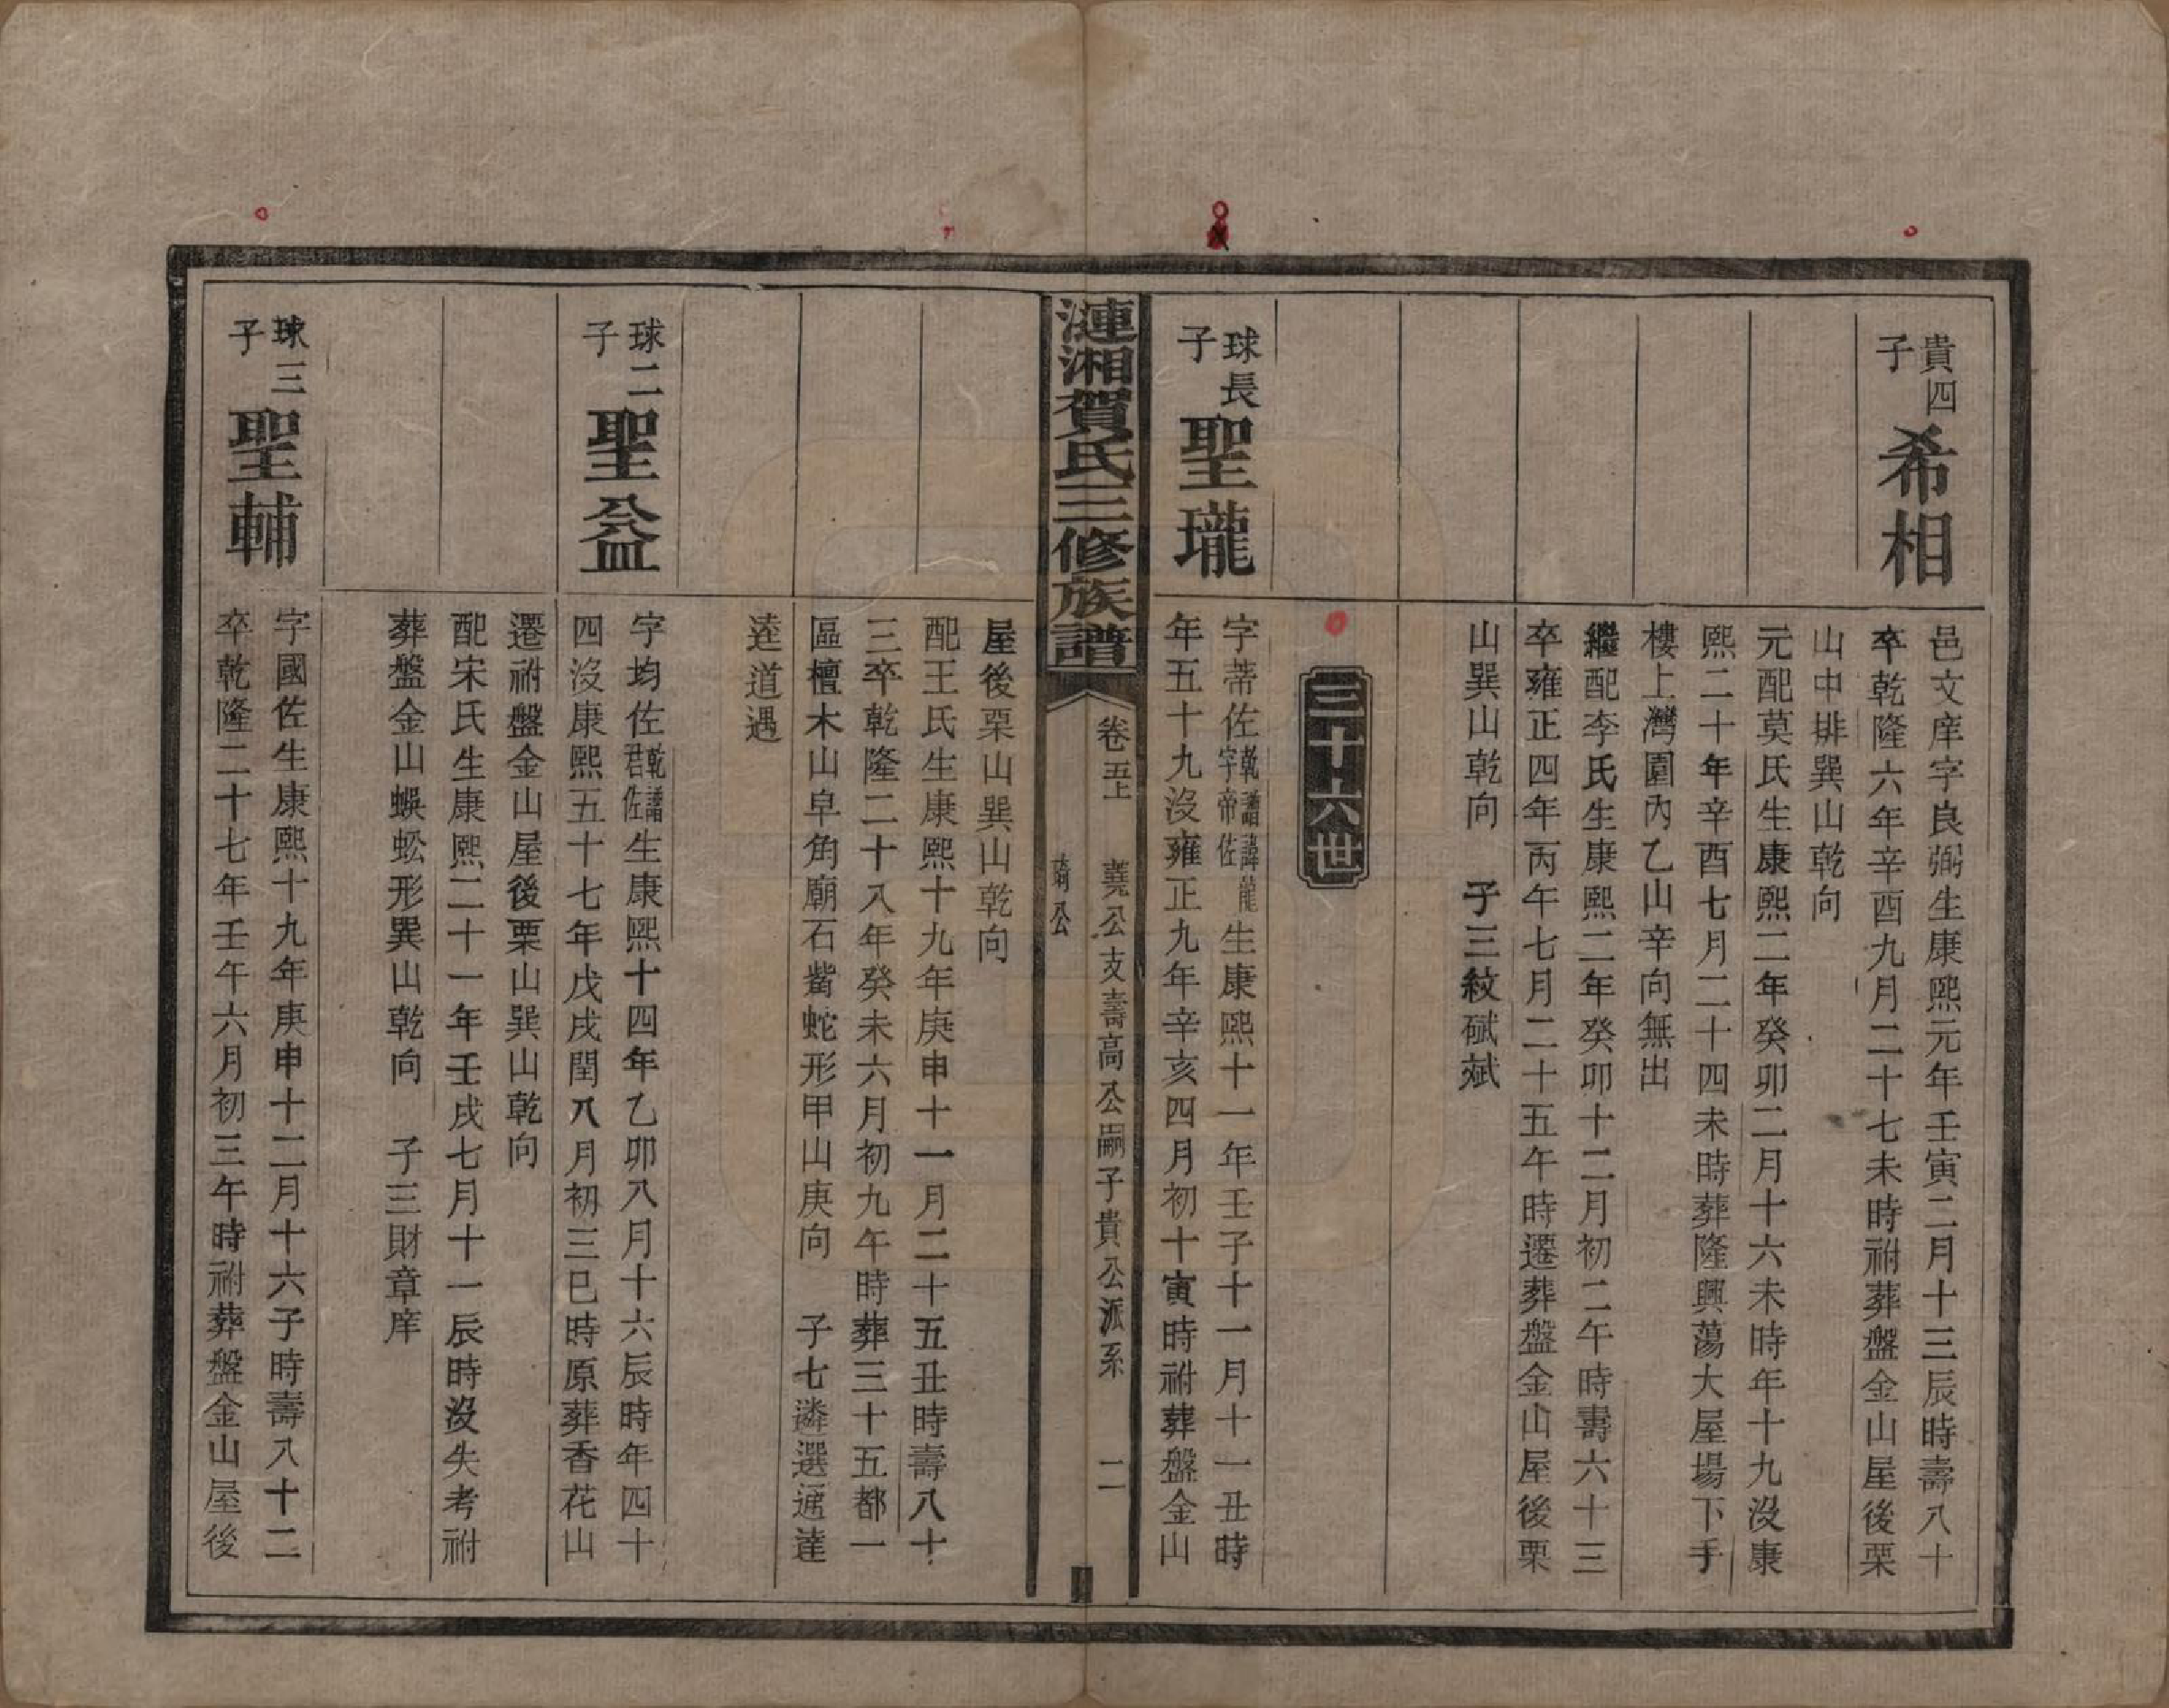 貴四子
希相
邑文庠字良弼生康熙元年壬寅二月十三辰時壽八十
卒乾隆六年辛酉九月二十七未時祔葬盤金山屋後栗
山中排巽山乾向
元配莫氏生康熙二年癸卯二月十六未時年十九沒康
熙二十年辛酉七月二十四未時葬隆興蕩大屋場下手
樓上灣園內乙山辛向無出
繼配李氏生康熙二年癸卯十二月初二午時壽六十三
卒雍正四年丙午七月二十五午時遷葬盤金山屋後栗
山巽山乾向　子三紋碔斌
三十六世
球長子
聖瓏
字蒂佐乾譜諱龍字帝佐生康熙十一年壬子十一月十一丑時
年五十九沒雍正九年辛亥四月初十寅時祔葬盤金山
漣湘賀氏三修族譜
卷五上
蕘公支壽高公嗣子貴公派系
二
屋後栗山巽山乾向
配王氏生康熙十九年庚申十一月二十五丑時壽八十
三卒乾隆二十八年癸未六月初九午時葬三十五都一
區檀木山皁角廟石觜蛇形甲山庚向　子七遴選通達
逵道遇
球二子
聖益
字均佐乾譜君佐生康熙十四年乙卯八月十六辰時年四十
四沒康熙五十七年戊戌閏八月初三巳時原葬香花山
遷祔盤金山屋後栗山巽山乾向
配宋氏生康熙二十一年壬戌七月十一辰時沒失考祔
葬盤金山蜈蚣形巽山乾向　子三財章庠
球三子
聖輔
字國佐生康熙十九年庚申十二月十六子時壽八十二
卒乾隆二十七年壬午六月初三午時祔葬盤金山屋後